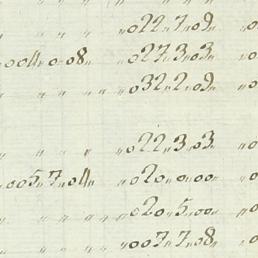 „ „ „ „022„7„09„ „0
„004„0„08„ „027„3„3„ „0
„ „ „ „032„2„9„ „0
„ „ „ „022„3„3„ „0
„005„7„04„ „020„0„00„ „0
„ „ „ „020„5„00„ „0
„ „ „ „007„7„08„ „0